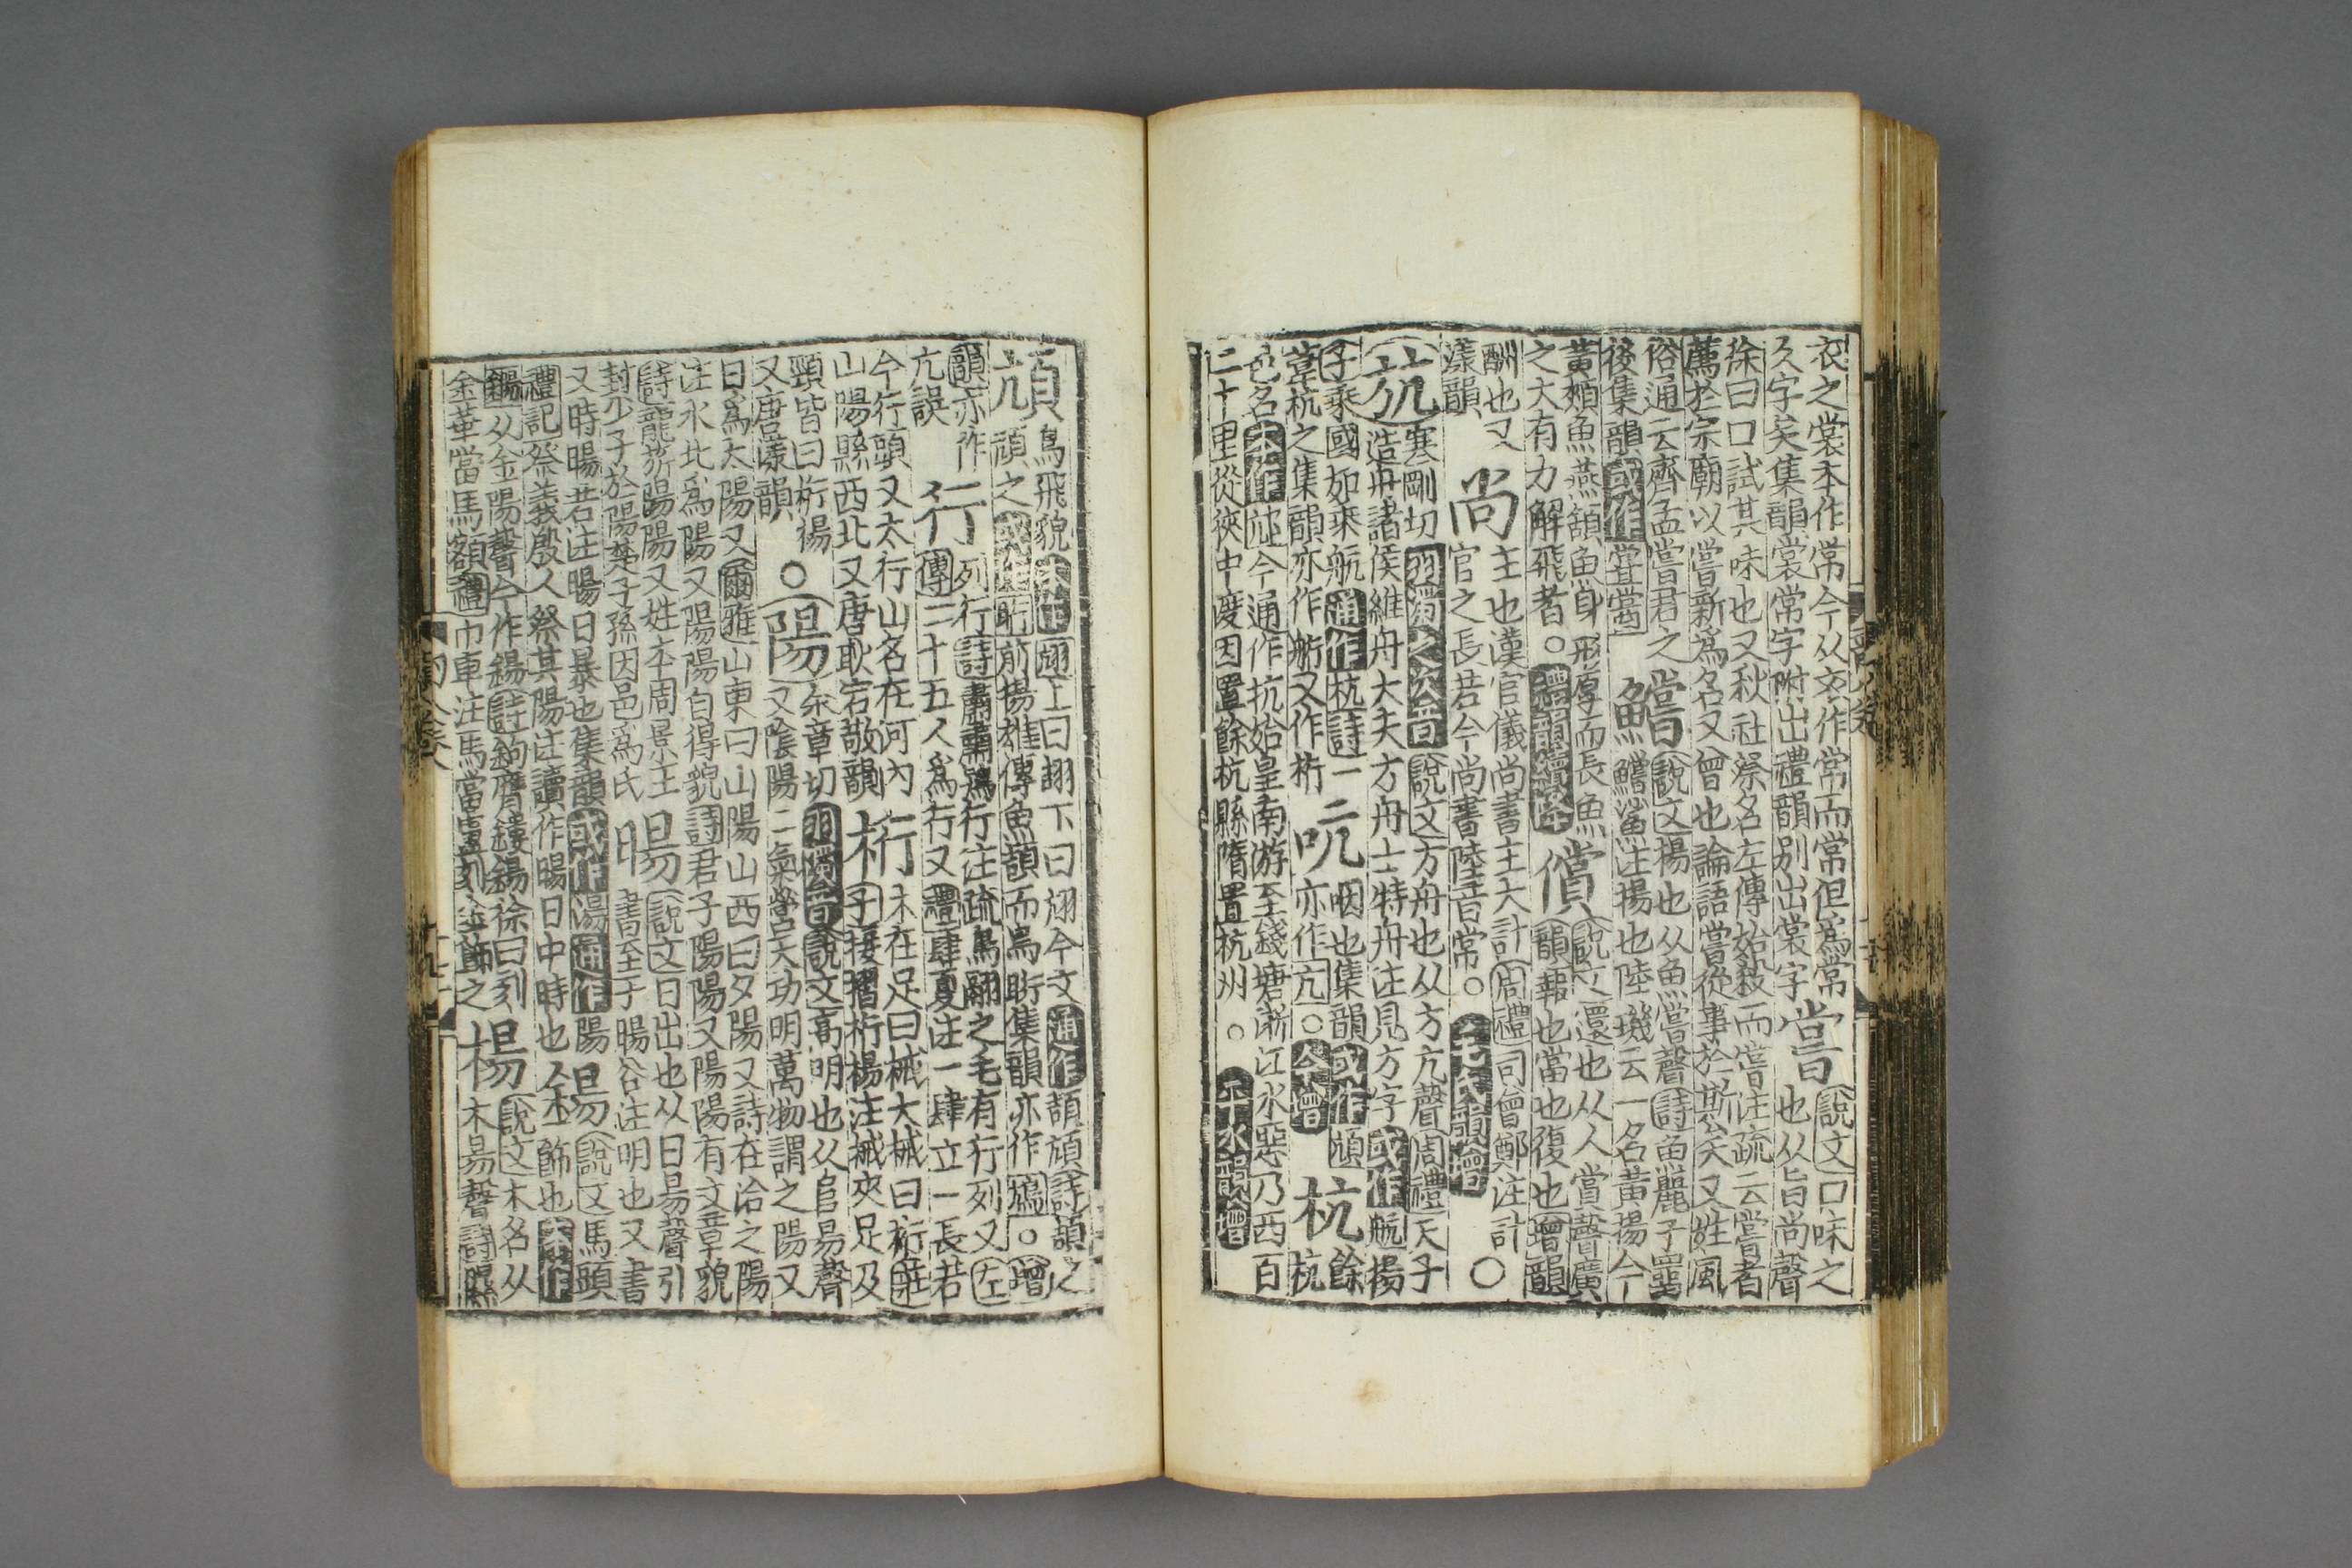 衣之裳本作常今从文作常常而常但爲常
久字矣集韻裳常字附出禮韻別出裳字
嘗
說文口味之
也从旨尚聲
徐曰口試其味也又秋社祭名左傳始殺而嘗注疏云嘗者
薦於宗廟以嘗新爲名又曾也論語嘗從事於斯矣又姓風
俗通云齊孟嘗君之
後集韻或作甞
鱨
說文揚也从魚嘗聲詩魚麗于罶
鱨鯊注揚也陸璣云一名黃揚今
黃頰魚燕頷魚身形厚而長魚
之大有力解飛者○禮韻續降
償
說文還也从人賞聲廣
韻報也當也復也增韻
酬也又
漾韻
尚
主也漢官儀尚書主大計周禮司會鄭注計
官之長若今尚書陸音常○毛氏韻增
○
航
寒剛切羽濁次音說文方舟也从方亢聲周禮天子
造舟諸侯維舟大夫方舟士特舟注見方字或作航揚
子乘國如乘航通作杭詩一
葦杭之集韻亦作斻又作桁
吭
咽也集韻或作頏
亦作亢○今增
杭
餘杭
邑名本作今通作抗始皇南游至錢塘浙江水惡乃西百
二十里從狹中度因置餘杭縣隋置杭州○平水韻增
頏
鳥飛貌本作翓上曰翓下曰翃今文通作頡頏詩頡之
頏之或作䀪前揚雄傳魚頡而鳥䀪集韻亦作○增
韻亦作
亢誤
行
列行詩肅肅鴇行注疏鳥翮之毛有行列又左
傳二十五人爲行又禮肆夏注一肆立一長若
今行頭又太行山名在河內
山陽縣西北又唐耿宕敬韻
桁
木在足曰械大械曰桁莊
子接摺桁楊注械夾足及
頸皆曰桁楊
又唐漾韻
○
陽
余章切羽濁音說文高明也从𨸏昜聲
又陰陽二氣營天功明萬物謂之陽又
日爲太陽又爾雅山東曰山陽山西曰夕陽又詩在洽之陽
注水北爲陽又陽陽自得貌詩君子陽陽又陽陽有文章貌
詩龍旂陽陽又姓本周景王
封少子於陽樊子孫因邑爲氏
暘
說文日出也从日昜聲引
書至于暘谷注明也又書
又時暘若注暘日暴也集韻或作湯通作陽
禮記祭義殷人祭其陽注讀作暘日中時也
鍚
說文馬頭
金飾也本作
鐊从金陽聲今作鍚詩鉤膺鏤鍚徐曰刻
金華當馬額禮巾車注馬當盧刻金飾之
楊
說文木名从
木昜聲詩